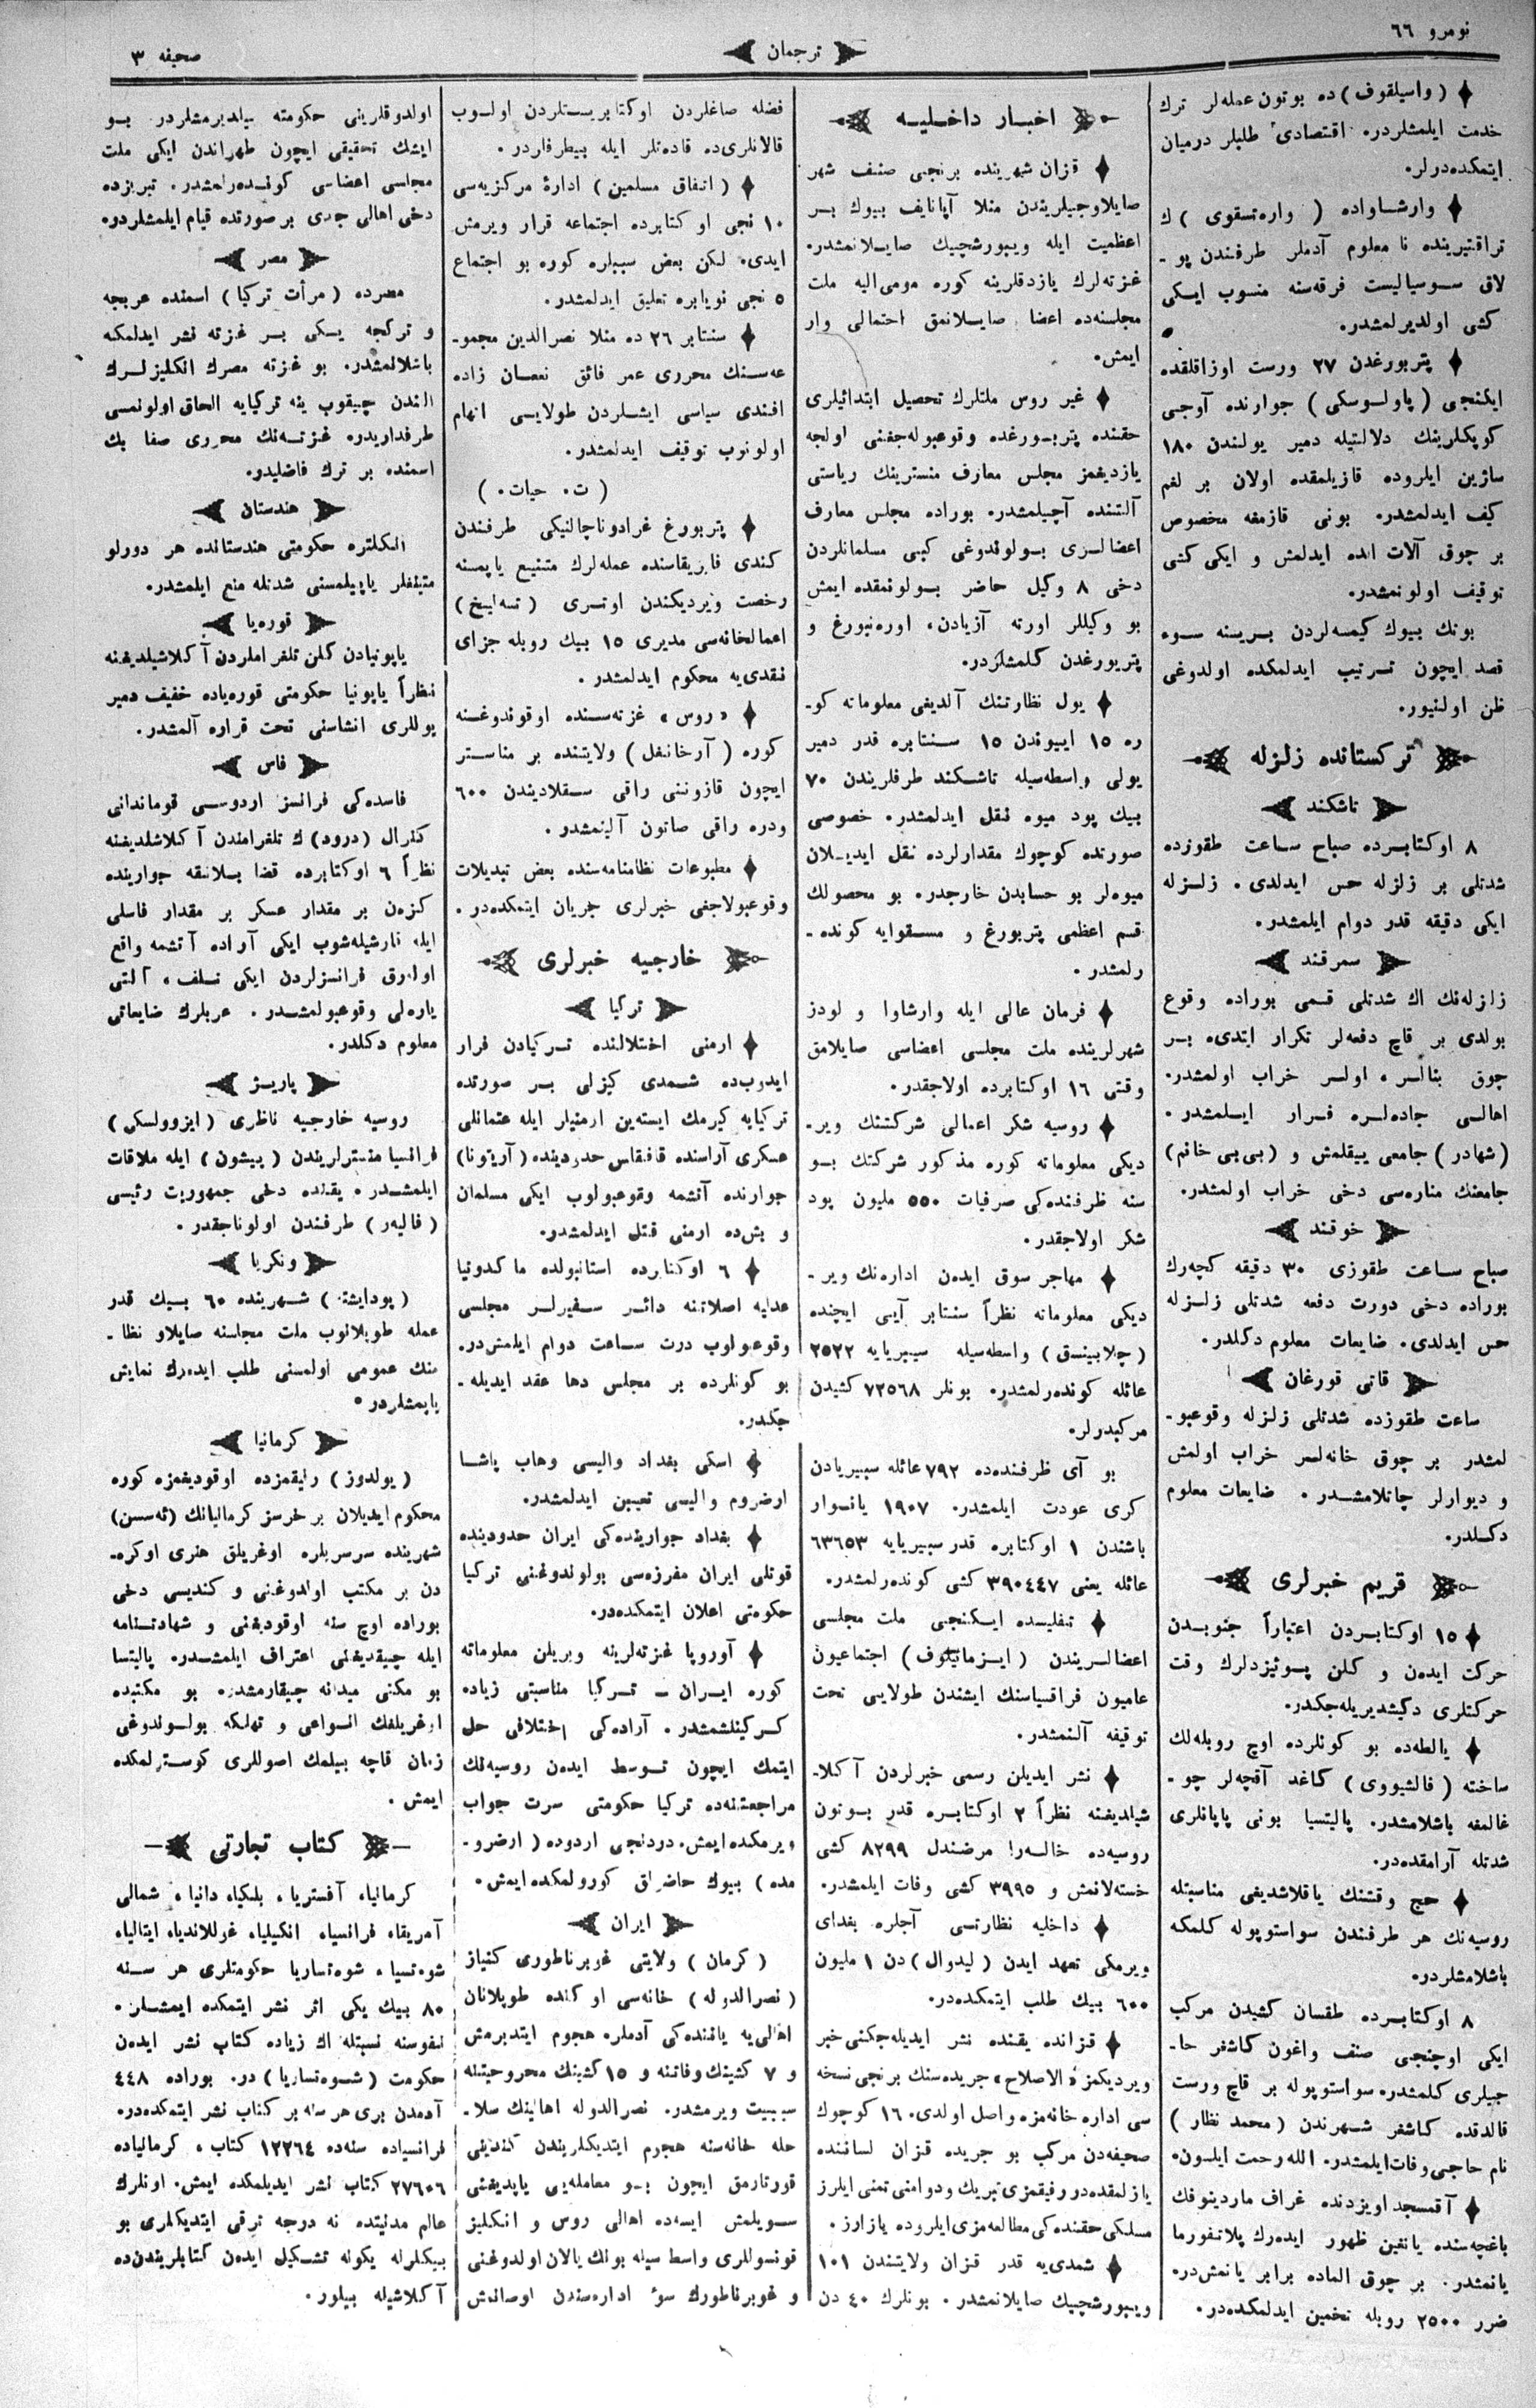 نومرو ٦٦
ترجمان
صحیفه ٣
(واسیلقوف) ده بوتون عمله‌لر ترك
خدمت ایلمشلردر. اقتصادی طلبلر درمیان
ایتمكده‌درلر.
وارشاواده (واره‌تسقوی) ك
تراقتیرینده نا معلوم آدملر طرفندن پو-
لاق سوسیالیست فرقه‌سنه منسوب ایكی
كشی اولدیرلمشدر.
پتربورغدن ٢٧ ورست اوزاقلقده
ایكنجی (پاولوسكی) جوارنده آوجی
كوپكلرینك دلالتیله دمیر یولندن ١٨٠
ساژین ایلروده قازیلمقده اولان بر لغم
كیف ایدلمشدر. بونی قازمغه مخصوص
بر چوق آلات اخذه ایدلمش و ایكی كشی
توقیف اولونمشدر.
بونك بیوك كیمسه‌لردن بریسنه سوء
قصد ایچون ترتیب ایدلمكده اولدوغی
ظن اولنیور.
تركستانده زلزله
تاشكند
٨ اوكتابرده صباح ساعت طقوزده
شدتلی بر زلزله حس ایدلدی. زلزله
ایكی دقیقه قدر دوام ایلمشدر.
سمرقند
زلزله‌نك اك شدتلی قسمی بوراده وقوع
بولدی بر قاچ دفعه‌لر تكرار ایتدی. بر
چوق بنالر، اولر خراب اولمشدر.
اهالی جاده‌لره فرار ایلمشدر.
(شهادر) جامعی ییقلمش و (بی بی خانم)
جامعنك مناره‌سی دخی خراب اولمشدر.
خوقند
صباح ساعت طقوزی ٣٠ دقیقه كچه‌رك
بوراده دخی دورت دفعه شدتلی زلزله
حس ایدلدی. ضایعات معلوم دكلدر.
قاتی قورغان
ساعت طقوزده شدتلی زلزله وقوعبو-
لمشدر بر چوق خانه‌لر خراب اولمش
و دیوارلر چاتلامشدر. ضایعات معلوم
دكلدر.
قریم خبرلری
١٥ اوكتابردن اعتباراً جنوبدن
حركت ایدن و كلن پوئیزدلرك وقت
حركتلری دكیشدیریله‌جكدر.
یالطه‌ده بو كونلرده اوچ روبله‌لك
ساخته (فالشیووی) كاغد آقچه‌لر چو-
غالمغه باشلامشدر. پالیتسیا بونی یاپانلری
شدتله آرامقده‌در.
حج وقتنك یاقلاشدیغی مناسبتله
روسیه‌نك هر طرفندن سواستوپوله كلمكه
باشلامشلردر.
٨ اوكتابرده طقسان كشیدن مركب
ایكی اوچنجی صنف واغون كاشغر حا-
جیلری كلمشدر. سواستوپوله بر قاچ ورست
قالدقده كاشغر شهرندن (محمد نظار)
نام حاجی وفات ایلمشدر. الله رحمت ایلسون.
آقمسجد اویزدنده غراف ماردینوفك
باغچه‌سنده یانغین ظهور ایده‌رك پلاتفورما
یانمشدر. بر چوق الماده برابر یانمش‌در.
ضرر ٢٥٠٠ روبله تخمین ایدلمكده‌در.
اخبار داخلیه
قزان شهرینده برنجی صنف شهر
صایلاوجیلریندن منلا آپانایف بیوك بر
اعظمیت ایله ویبورشچیك صایلانمشدر.
غزته‌لرك یازدقلرینه كوره مومی الیه ملت
مجلسنه‌ده اعضا صایلانمق احتمالی وار
ایمش.
غیر روس ملتلرك تحصیل ابتدائیلری
حقنده پتربورغده وقوعبوله‌جغنی اولجه
یازدیغمز مجلس معارف منسترینك ریاستی
آلتنده آچیلمشدر. بوراده مجلس معارف
اعضالری بولوندوغی كبی مسلمانلردن
دخی ٨ وكیل حاضر بولونمقده ایمش
بو وكیللر اورته آزیادن، اوره‌نبورغ و
پتربورغدن كلمشلردر.
یول نظارتنك آلدیغی معلوماته كو-
ره ١٥ اییوندن ١٥ سنتابره قدر دمیر
یولی واسطه‌سیله تاشكند طرفلریندن ٧٠
بیك پود میوه نقل ایدلمشدر. خصوصی
صورتده كوچوك مقدارلرده نقل ایدیلان
میوه‌لر بو حسابدن خارجدر. بو محصولك
قسم اعظمی پتربورغ و مسقوایه كونده-
رلمشدر.
فرمان عالی ایله وارشاوا و لودز
شهرلرینده ملت مجلسی اعضاسی صایلامق
وقتی ١٦ اوكتابرده اولاجقدر.
روسیه شكر اعمالی شركتنك ویر-
دیكی معلوماته كوره مذكور شركتك بو
سنه ظرفنده‌كی صرفیات ٥٥٠ ملیون پود
شكر اولاجقدر.
مهاجر سوق ایدن اداره‌نك ویر-
دیكی معلوماته نظراً سنتابر آیی ایچنده
(چلابینسق) واسطه‌سیله سیبریایه ٢٥٢٢
عائله كونده‌رلمشدر. بونلر ٧٢٥٦٨ كشیدن
مركبدرلر.
بو آی ظرفنده‌ده ٧٩٢ عائله سیبریادن
كری عودت ایلمشدر. ١٩٠٧ یانوار
باشندن ١ اوكتابره قدر سیبریایه ٦٣٦٥٣
عائله یعنی ٣٩٠٤٤٧ كشی كونده‌رلمشدر.
تفلیسده ایكنجی ملت مجلسی
اعضالریندن (ایزمائیلوف) اجتماعیون
عامیون فراقسیاسنك ایشندن طولایی تحت
توقیفه آلنمشدر.
نشر ایدیلن رسمی خبرلردن آكلا-
شیلدیغنه نظراً ٢ اوكتابره قدر بوتون
روسیه‌ده خاله‌را مرضندل ٨٢٩٩ كشی
خسته‌لانمش و ٣٩٩٥ كشی وفات ایلمشدر.
داخلیه نظارتی آجلره بغدای
ویرمكی تعهد ایدن (لیدوال) دن ١ ملیون
٦٠٠ بیك طلب ایتمكده‌در.
قزانده یقنده نشر ایدیله‌جكنی خبر
ویردیكمز «الاصلاح» جریده‌سنك برنجی نسخه
سی اداره خانه‌مزه واصل اولدی. ١٦ كوچوك
صحیفه‌دن مركب بو جریده قزان لسانده
یازلمقده‌در رفیقمزی تبریك و دوامنی تمنی ایلرز
مسلكی حقنده‌كی مطالعه‌مزی ایلروده یازارز.
شمدی‌یه قدر قزان ولایتندن ١٠١
ویبورشچیك صایلانمشدر. بونلرك ٤٠ دن
فضله صاغلردن اوكتابریستلردن اولوب
قالانلری‌ده قاده‌تلر ایله بیطرفلردر.
(اتفاق مسلمین) ادارهٔ مركزیه‌سی
١٠ نجی اوكتابرده اجتماعه قرار ویرمش
ایدی. لكن بعض سببلره كوره بو اجتماع
٥ نجی نویابره تعلیق ایدلمشدر.
سنتابر ٢٦ ده منلا نصرالدین مجمو-
عه‌سنك محرری عمر فائق نعمان زاده
افندی سیاسی ایشلردن طولایی اتهام
اولونوب توقیف ایدلمشدر.
(ت. حیات.)
پتربورغ غرادوناچالنیكی طرفندن
كندی فابریقاسنده عمله‌لرك متنیغ یاپمسنه
رخصت ویردیكندن اوتری (ته‌ایخ)
اعمالخانه‌سی مدیری ١٥ بیك روبله جزای
نقدی‌یه محكوم ایدلمشدر.
«روس» غزته‌سنده اوقوندوغنه
كوره (آرخانغل) ولایتنده بر مناستر
ایچون قازوننی راقی سقلادیندن ٦٠٠
ودره راقی صاتون آلینمشدر.
مطبوعات نظامنامه‌سنده بعض تبدیلات
وقوعبولاجغی خبرلری جریان ایتمكده‌در.
خارجیه خبرلری
تركیا
ارمنی اختلالنده تركیادن فرار
ایدوب‌ده شمدی كیزلی بر صورتده
تركیایه كیرمك ایسته‌ین ارمنیلر ایله عثمانلی
عسكری آراسنده قافقاس حدودینده (آریتونا)
جوارنده آتشمه وقوعبولوب ایكی مسلمان
و بش‌ده ارمنی قتل ایدلمشدر.
٦ اوكتابرده استانبولده ماكدونیا
عدلیه اصلاتنه دائر سفیرلر مجلسی
وقوعبولوب درت ساعت دوام ایلمش‌در.
بو كونلرده بر مجلس دها عقد ایدیله-
جكدر.
اسكی بغداد والیسی وهاب پاشا
ارضروم والیسی تعیین ایدلمشدر.
بغداد جوارینده‌كی ایران حدودینده
قوتلی ایران مفرزه‌سی بولوندوغنی تركیا
حكومتی اعلان ایتمكده‌در.
آوروپا غزته‌لرینه ویریلن معلوماته
كوره ایران - تركیا مناسبتی زیاده
كركینلشمشدر. آراده‌كی اختلافی حل
ایتمك ایچون توسط ایدن روسیه‌نك
مراجعتنه‌ده تركیا حكومتی سرت جواب
ویرمكده ایمش. دردنجی اردوده (ارضرو-
مده) بیوك حاضرلق كورولمكده ایمش.
ایران
(كرمان) ولایتی غوبرناطوری كنیاز
(نصرالدوله) خانه‌سی اوكنده طوپلانان
اهالی‌یه یاننده‌كی آدملره هجوم ایتدیرمش
و ٧ كشینك وفاتنه و ١٥ كشینك مجروحیتنه
سببیت ویرمشدر. نصرالدوله اهالینك سلا-
حله خانه‌سنه هجوم ایتدیكلریندن كندینی
قورتارمق ایچون بو معامله‌یی یاپدیغنی
سویلمش ایسه‌ده اهالی روس و انكلیز
قونسوللری واسطه سیله بونك یالان اولدوغنی
و غوبرناطورك سوء اداره‌سندن اوصانمش
اولدوقلرینی حكومته بیلدیرمشلردر. بو
ایشك تحقیقی ایچون طهراندن ایكی ملت
مجلسی اعضاسی كونده‌رلمشدر. تبریزده
دخی اهالی جدی بر صورتده قیام ایلمشلردر.
مصر
مصرده (مرأت تركیا) اسمنده عربجه
و تركجه یكی بر غزته نشر ایدلمكه
باشلالمشدر. بو غزته مصرك انكلیزلرك
الندن چیقوب ینه تركیایه الحاق اولونمسی
طرفداریدر. غزته‌نك محرری صفا بك
اسمنده بر ترك فاضلیدر.
هندستان
انكلتره حكومتی هندستانده هر دورلو
متینغلر یاپیلمسنی شدتله منع ایلمشدر.
قوره‌یا
یاپونیادن كلن تلغراملردن آكلاشیلدیغنه
نظراً یاپونیا حكومتی قوره‌یاده خفیف دمیر
یوللری انشاسنی تحت قراره آلمشدر.
فاس
فاسده‌كی فرانسز اردوسی قوماندانی
كنرال (درود) ك تلغرامندن آكلاشلدیغنه
نظراً ٦ اوكتابرده قضا بلانقه جوارینده
كزن بر مقدار عسكر بر مقدار فاسلی
ایله قارشیله‌شوب ایكی آراده آتشمه واقع
اولارق فرانسزلردن ایكی تلف، آلتی
یاره‌لی وقوعبولمشدر. عربلرك ضایعاتی
معلوم دكلدر.
پاریز
روسیه خارجیه ناظری (ایزوولسكی)
فرانسیا منسترلریندن (پیشون) ایله ملاقات
ایلمشدر. یقنده دخی جمهوریت رئیسی
(فالیه‌ر) طرفندن اولوناجقدر.
ونكریا
(بودایشته) شهرینده ٦٠ بیك قدر
عمله طوپلانوب ملت مجلسنه صایلاو نظا-
منك عمومی اولمسنی طلب ایده‌رك نمایش
یاپمشلردر.
كرمانیا
(یولدوز) رفیقمزده اوقودیغمزه كوره
محكوم ایدیلان بر خرسز كرمانیانك (ئه‌سسن)
شهرینده سرسریلره اوغریلق هنری اوكره-
دن بر مكتب اولدوغنی و كندیسی دخی
بوراده اوچ سنه اوقودیغنی و شهادتنامه
ایله چیقدیغنی اعتراف ایلمشدر. پالیتسا
بو مكتبی میدانه چیقارمشدر. بو مكتبده
اوغریلقك انواعی و تهلكه بولوندوغی
زمان قاچه بیلمك اصوللری كوسترلمكده
ایمش.
كتاب تجارتی
كرمانیا، آفستریا، بلمكیا، دانیا، شمالی
آمریقا، فرانسیا، انكیلیا، غوللاندیا، ایتالیا،
شوه‌تسیا، شوه‌تساریا حكومتلری هر سنه
٨٠ بیك یكی اثر نشر ایتمكده ایمشلر.
نفوسنه نسبتله اك زیاده كتاب نشر ایدن
حكومت (شوه‌تساریا) در. بوراده ٤٤٨
آدمدن بری هر سنه بر كتاب نشر ایتمكده‌در.
فرانسیاده سنه‌ده ١٢٢٦٤ كتاب، كرمانیاده
٢٧٦٠٦ كتاب نشر ایدیلمكده ایمش. اونلرك
عالم مدنیتده نه درجه ترقی ایتدیكلری بو
بیكلرله یكونه تشكیل ایدن كتابلریندن‌ده
آكلاشیله بیلور.